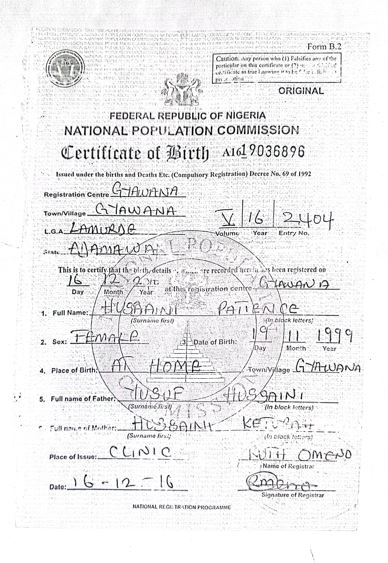 Form B.2
Caution: Any person who (1) Falsifies any of the
particular on this certificate or (2)
certificate as true knowing it to be
ORIGINAL
FEDERAL REPUBLIC OF NIGERIA
NATIONAL POPULATION COMMISSION
Certificate of Birth A1619036896
Issued under the births and Deaths Etc. (Compulsory Registration) Decree No. 69 of 1992
Registration Centre GYAWANA
Town/Village GYAWANA V 16 2404
L.G.A LAMURDE Volume Year Entry No.
State ADAMAWA
This is to certify that the birth, details are recorded herein has been registered on
16 12 at this registration centre GYAWANA
Day Month Year
1. Full Name: HUSSAINI PATIENCE
(Surname first) (In block letters)
2. Sex: FEMALE 3. Date of Birth: 19 11 1999
Day Month Year
4. Place of Birth: AT HOME Town/Village GYAWANA
5. Full name of Father: YUSUF HUSSAINI
(Surname first) (In block letters)
Full name of Mother: HUSSAINI KETURAH
(Surname first) (In block letters)
Place of Issue: CLINIC RUTH OMENO
Name of Registrar
Date: 16-12-16
Signature of Registrar
NATIONAL REGISTRATION PROGRAMME